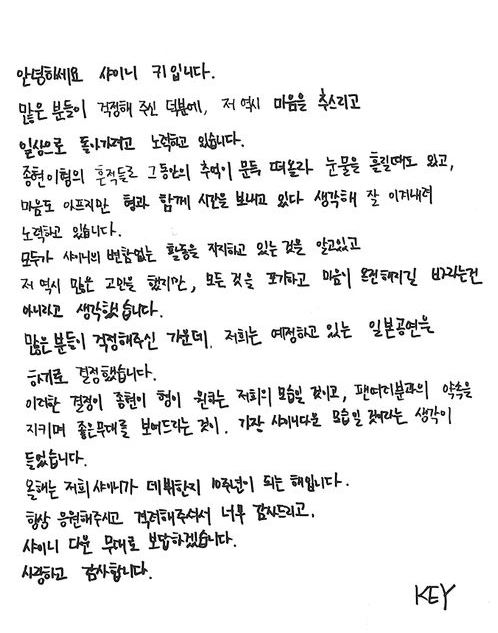 안녕하세요 샤이니 키입니다.
많은 분들이 걱정해 주신 덕분에, 저 역시 마음을 추스리고
일상으로 돌아가려고 노력하고 있습니다.
종현이형의 흔적들로 그동안의 추억이 문득 떠올라 눈물을 흘릴때도 있고,
마음도 아프지만 형과 함께 시간을 보내고 있다 생각해 잘 이겨내려
노력하고 있습니다.
모두가 샤이니의 변함없는 활동을 지지하고 있는 것을 알고있고
저 역시 많은 고민을 했지만, 모든 것을 포기하고 마음이 온전해지길 바라는건
아니라고 생각했습니다.
많은 분들이 걱정해주신 가운데, 저희는 예정하고 있는 일본공연을
하기로 결정했습니다.
이러한 결정이 종현이 형이 원하는 저희의 모습일 것이고, 팬여러분과의 약속을
지키며 좋은무대를 보여드리는 것이, 가장 샤이니다운 모습일 것이라는 생각이
들었습니다.
올해는 저희 샤이니가 데뷔한지 10주년이 되는 해입니다.
항상 응원해주시고 격려해주셔서 너무 감사드리고,
샤이니 다운 무대로 보답하겠습니다.
사랑하고 감사합니다.
KEY